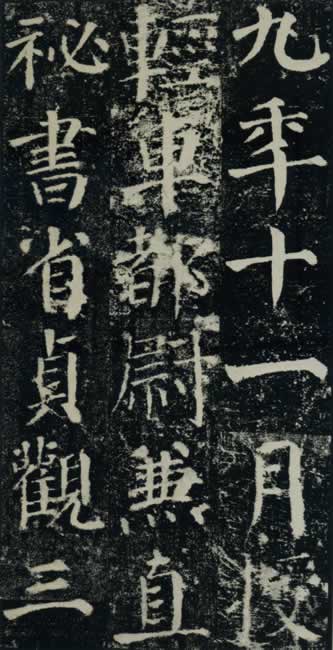 九年十一月授
輕車都尉兼直
秘書省貞觀三